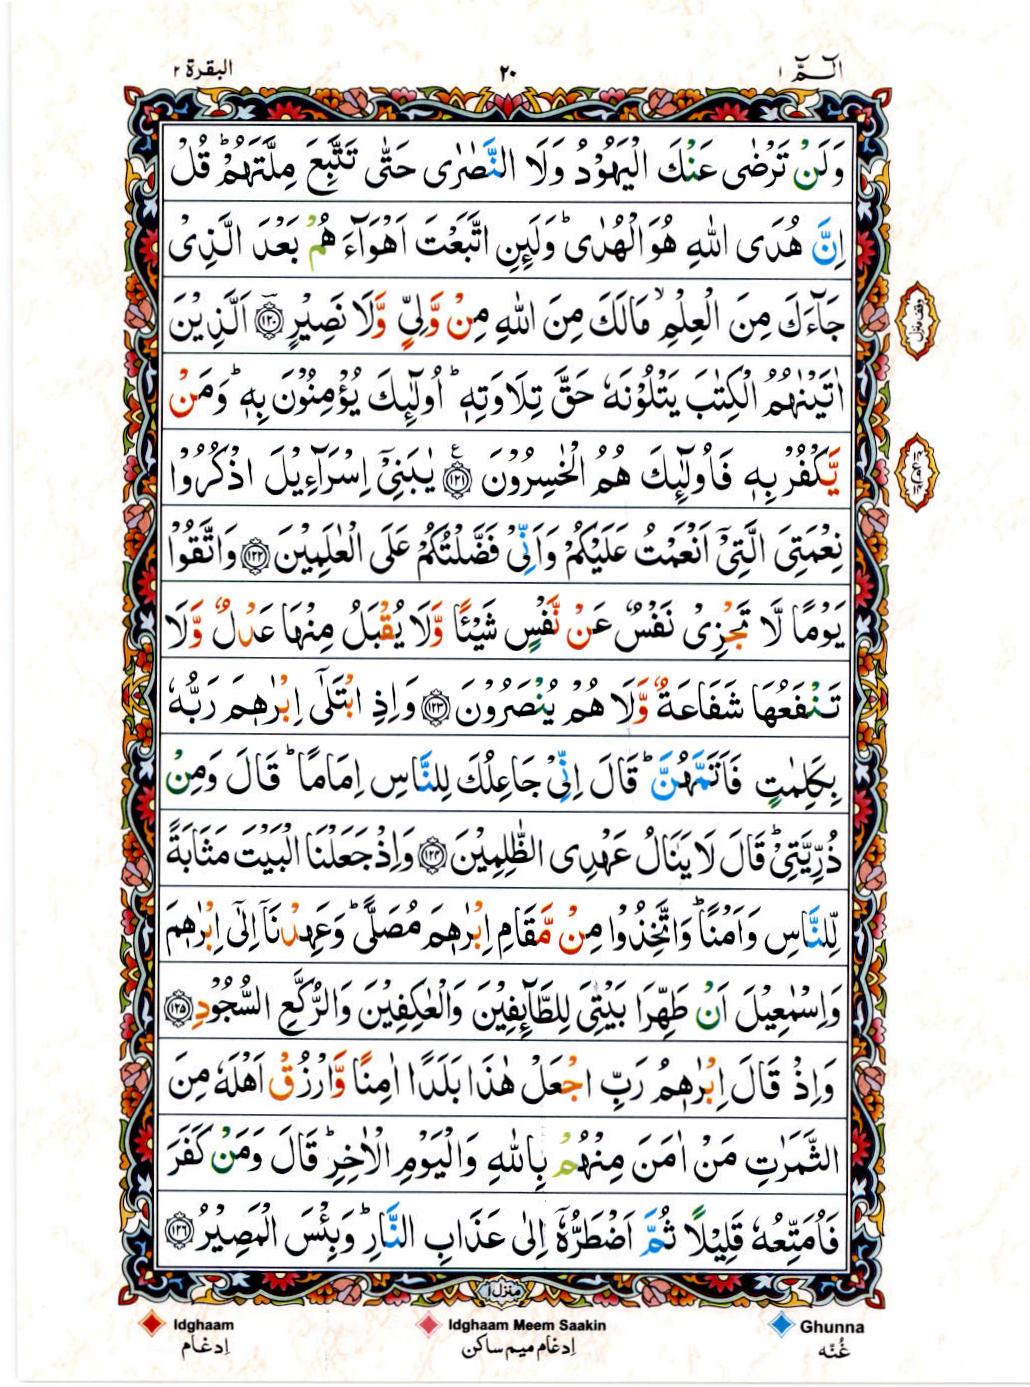 الٓمّٓ ١
٢٠
البقرة ٢
وَلَنْ تَرْضٰى عَنْكَ الْيَهُوْدُ وَلَا النَّصٰرٰى حَتّٰى تَتَّبِعَ مِلَّتَهُمْ ؕ قُلْ
اِنَّ هُدَى اللّٰهِ هُوَ الْهُدٰى ؕ وَلَئِنِ اتَّبَعْتَ اَهْوَآءَ هُمْ بَعْدَ الَّذِىْ
جَآءَكَ مِنَ الْعِلْمِ ۙ مَالَكَ مِنَ اللّٰهِ مِنْ وَّلِىٍّ وَّلَا نَصِيْرٍ ؔ﴿۱۲۰﴾ اَلَّذِيْنَ
اٰتَيْنٰهُمُ الْكِتٰبَ يَتْلُوْنَهٗ حَقَّ تِلَاوَتِهٖ ؕ اُولٰٓئِكَ يُؤْمِنُوْنَ بِهٖ ؕ وَمَنْ
يَّكْفُرْ بِهٖ فَاُولٰٓئِكَ هُمُ الْخٰسِرُوْنَ ﴿۱۲۱﴾ ع يٰبَنِىْٓ اِسْرَآءِيْلَ اذْكُرُوْا
نِعْمَتِىَ الَّتِىْٓ اَنْعَمْتُ عَلَيْكُمْ وَاَنِّىْ فَضَّلْتُكُمْ عَلَى الْعٰلَمِيْنَ ﴿۱۲۲﴾ وَاتَّقُوْا
يَوْمًا لَّا تَجْزِىْ نَفْسٌ عَنْ نَّفْسٍ شَيْئًا وَّلَا يُقْبَلُ مِنْهَا عَدْلٌ وَّلَا
تَنْفَعُهَا شَفَاعَةٌ وَّلَا هُمْ يُنْصَرُوْنَ ﴿۱۲۳﴾ وَاِذِ ابْتَلٰٓى اِبْرٰهٖمَ رَبُّهٗ
بِكَلِمٰتٍ فَاَتَمَّهُنَّ ؕ قَالَ اِنِّىْ جَاعِلُكَ لِلنَّاسِ اِمَامًا ؕ قَالَ وَمِنْ
ذُرِّيَّتِىْ ؕ قَالَ لَا يَنَالُ عَهْدِى الظّٰلِمِيْنَ ﴿۱۲۴﴾ وَاِذْ جَعَلْنَا الْبَيْتَ مَثَابَةً
لِّلنَّاسِ وَاَمْنًا ؕ وَاتَّخِذُوْا مِنْ مَّقَامِ اِبْرٰهٖمَ مُصَلًّى ؕ وَعَهِدْنَآ اِلٰٓى اِبْرٰهٖمَ
وَاِسْمٰعِيْلَ اَنْ طَهِّرَا بَيْتِىَ لِلطَّآئِفِيْنَ وَالْعٰكِفِيْنَ وَالرُّكَّعِ السُّجُوْدِ ﴿۱۲۵﴾
وَاِذْ قَالَ اِبْرٰهٖمُ رَبِّ اجْعَلْ هٰذَا بَلَدًا اٰمِنًا وَّارْزُقْ اَهْلَهٗ مِنَ
الثَّمَرٰتِ مَنْ اٰمَنَ مِنْهُمْ بِاللّٰهِ وَالْيَوْمِ الْاٰخِرِ ؕ قَالَ وَمَنْ كَفَرَ
فَاُمَتِّعُهٗ قَلِيْلًا ثُمَّ اَضْطَرُّهٗٓ اِلٰى عَذَابِ النَّارِ ؕ وَبِئْسَ الْمَصِيْرُ ﴿۱۲۶﴾
وقف منزل
منزل ١
Idghaam Idghaam Meem Saakin Ghunna
اِدغام اِدغام میم ساکن غُنّه